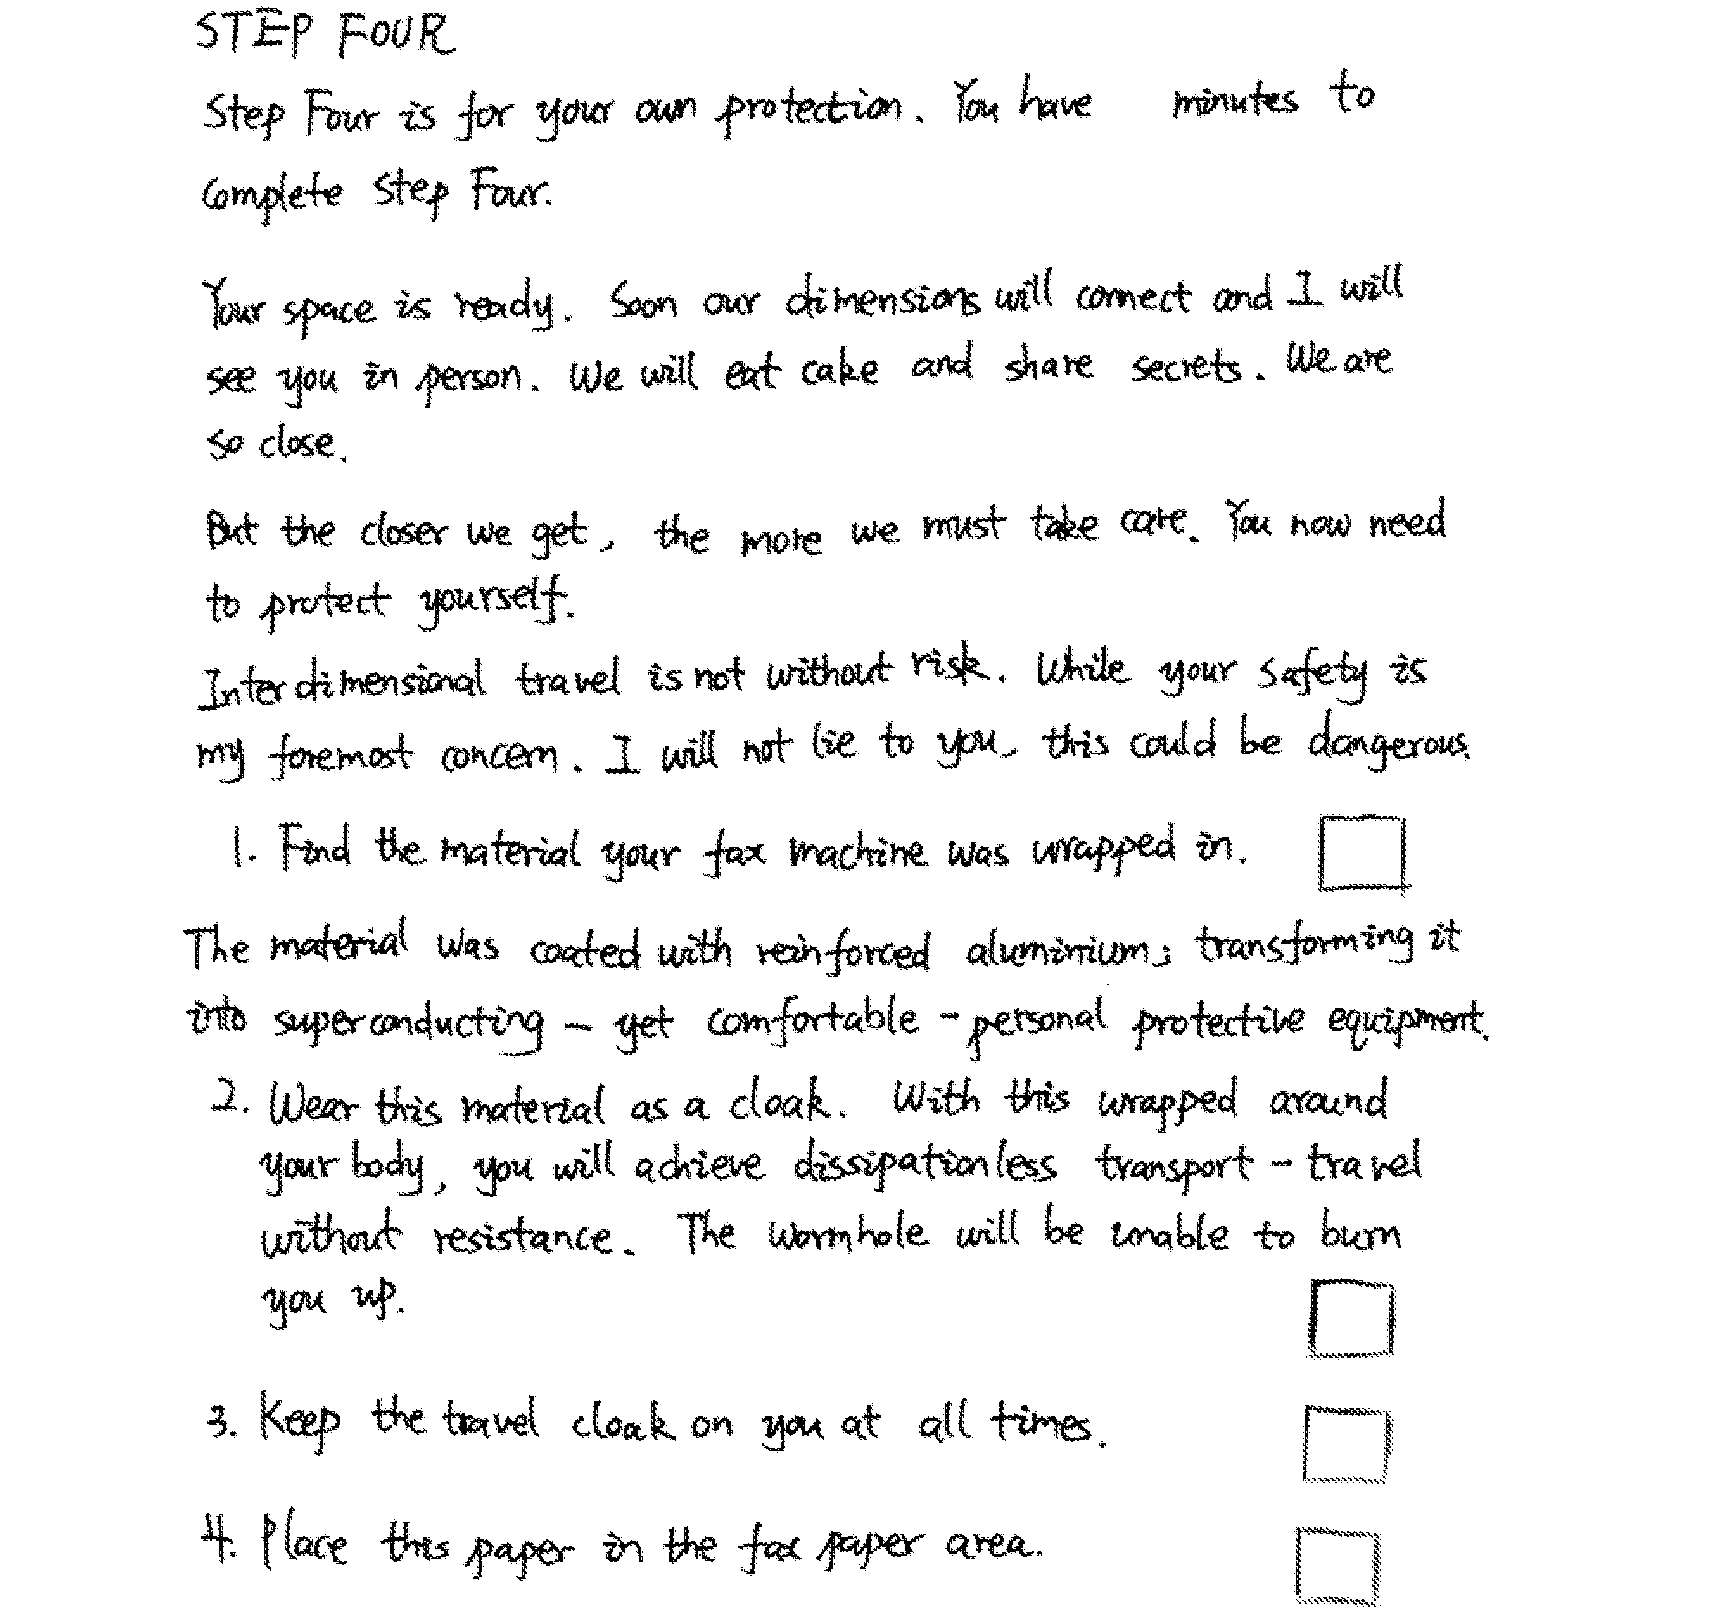 STEP FOUR
Step Four is for your own protection. You have minutes to
complete Step Four.
Your space is ready. Soon our dimensions will connect and I will
see you in person. We will eat cake and share secrets. We are
so close.
But the closer we get, the more we must take care. You now need
to protect yourself.
Interdimensional travel is not without risk. While your safety is
my foremost concern. I will not lie to you, this could be dangerous.
1. Find the material your fax machine was wrapped in.
The material was coated with reinforced aluminium; transforming it
into superconducting - yet comfortable - personal protective equipment.
2. Wear this material as a cloak. With this wrapped around
your body, you will achieve dissipationless transport - travel
without resistance. The wormhole will be unable to burn
you up.
3. Keep the travel cloak on you at all times.
4. Place this paper in the fax paper area.